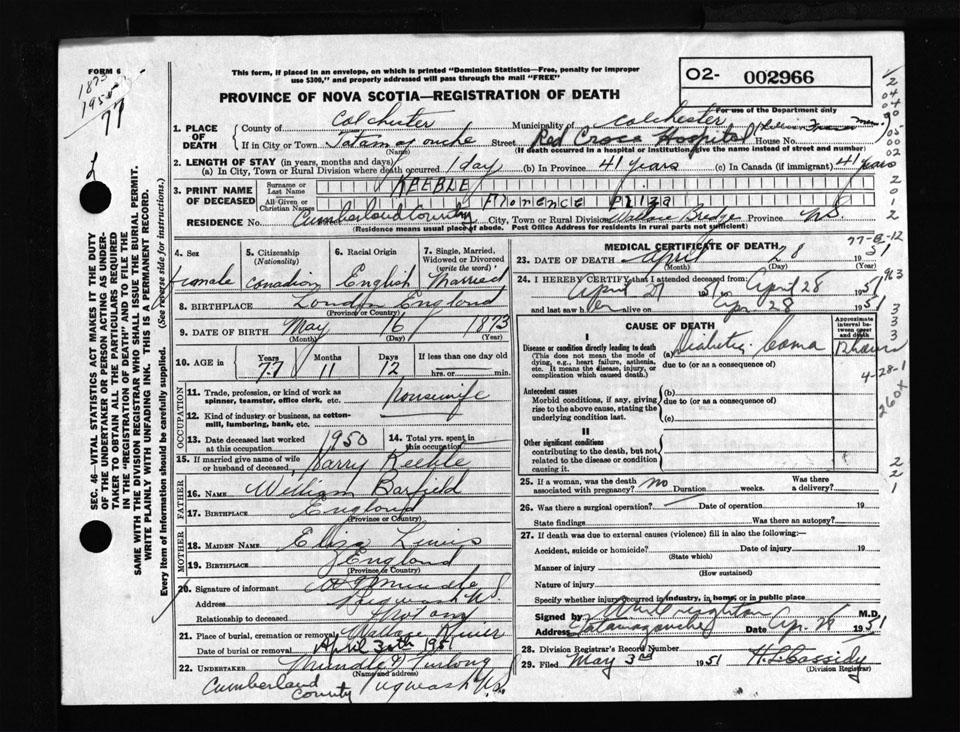 FORM 6
1873
1951
77
This form, if placed in an envelope, on which is printed "Dominion Statistics—Free, penalty for improper
use $300," and properly addressed will pass through the mail "FREE"
PROVINCE OF NOVA SCOTIA—REGISTRATION OF DEATH
O2- 002966
For use of the Department only
1. PLACE OF DEATH County of Colchester Municipality of Colchester
If in City or Town Tatamagouche Street Red Cross Hospital House No.
(Name) (If death occurred in a hospital or institution, give the name instead of street and number)
2. LENGTH OF STAY (in years, months and days)
(a) In City, Town or Rural Division where death occurred 1 day (b) In Province 41 years (c) In Canada (if immigrant) 41 years
3. PRINT NAME OF DECEASED Surname or Last Name KEEBLE
All Given or Christian Names Florence Eliza
RESIDENCE No. Cumberland County City, Town or Rural Division Wallace Bridge Province N.S.
(Residence means usual place of abode. Post Office Address for residents in rural parts not sufficient)
4. Sex female
5. Citizenship (Nationality) Canadian
6. Racial Origin English
7. Single, Married, Widowed or Divorced (write the word) Married
8. BIRTHPLACE London England
(Province or Country)
9. DATE OF BIRTH May 16 1873
(Month) (Day) (Year)
10. AGE in Years 77 Months 11 Days 12 If less than one day old
hrs. or min.
OCCUPATION
11. Trade, profession, or kind of work as spinner, teamster, office clerk, etc. Housewife
12. Kind of industry or business, as cotton-mill, lumbering, bank, etc.
13. Date deceased last worked at this occupation 1950 14. Total yrs. spent in this occupation
15. If married give name of wife or husband of deceased Harry Keeble
FATHER
16. NAME William Barfield
17. BIRTHPLACE England
(Province or Country)
MOTHER
18. MAIDEN NAME Eliza Lewis
19. BIRTHPLACE England
(Province or Country)
20. Signature of informant
Address Pugwash N.S.
Relationship to deceased Not any
21. Place of burial, cremation or removal Wallace River
Date of burial or removal April 30th 1951
22. UNDERTAKER Mundle & Furlong
(Name and address)
Cumberland County Pugwash N.S.
MEDICAL CERTIFICATE OF DEATH
77-B-12
23. DATE OF DEATH April 28 19 51
(Month) (Day) (Year)
24. I HEREBY CERTIFY that I attended deceased from:
April 27 1951 to April 28 1951
and last saw her alive on Apr. 28 1951
CAUSE OF DEATH
Approximate interval between onset and death
I
Disease or condition directly leading to death
(This does not mean the mode of dying, e.g., heart failure, asthenia, etc. It means the disease, injury, or complication which caused death.)
(a) Diabetic Coma
due to (or as a consequence of)
4-28-1
260x
Antecedent causes
Morbid conditions, if any, giving rise to the above cause, stating the underlying condition last.
(b)
due to (or as a consequence of)
(c)
II
Other significant conditions
contributing to the death, but not related to the disease or condition causing it.
25. If a woman, was the death associated with pregnancy? no Duration weeks. Was there a delivery?
26. Was there a surgical operation? Date of operation 19
State findings Was there an autopsy?
27. If death was due to external causes (violence) fill in also the following:—
Accident, suicide or homicide? Date of injury 19
(State which)
Manner of injury
(How sustained)
Nature of injury
Specify whether injury occurred in industry, in home, or in public place
Signed by Creighton M.D.
Address Tatamagouche Date Apr. 28 1951
28. Division Registrar's Record Number
29. Filed May 3rd 1951 H.L. Cassidy
(Division Registrar)
SEC. 46—VITAL STATISTICS ACT MAKES IT THE DUTY
OF THE UNDERTAKER OR PERSON ACTING AS UNDERTAKER TO OBTAIN ALL THE PARTICULARS REQUIRED
IN THE "REGISTRATION OF DEATH" AND TO FILE THE
SAME WITH THE DIVISION REGISTRAR WHO SHALL ISSUE THE BURIAL PERMIT.
WRITE PLAINLY WITH UNFADING INK. THIS IS A PERMANENT RECORD.
Every item of information should be carefully supplied. (See reverse side for instructions.)